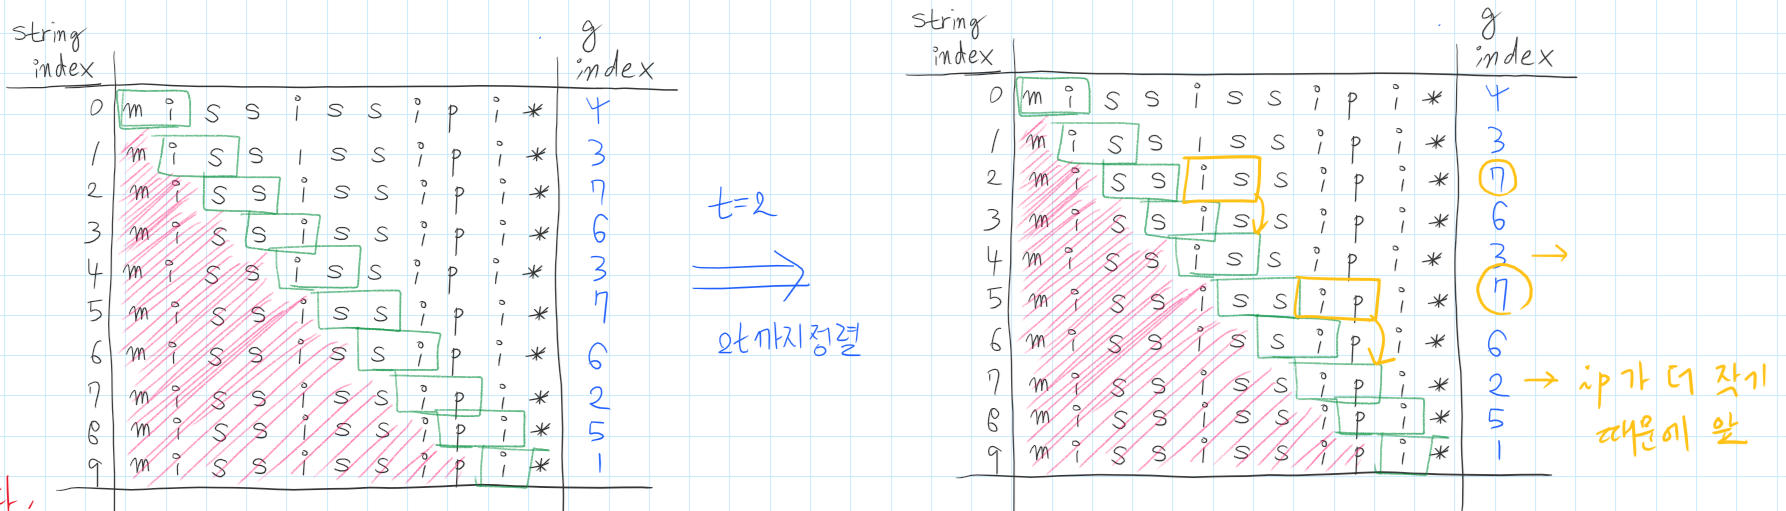 string
index
g
index
0 m i s s i s s i p i * 4
1 m i s s i s s i p i * 3
2 m i s s i s s i p i * 7
3 m i s s i s s i p i * 6
4 m i s s i s s i p i * 3
5 m i s s i s s i p i * 7
6 m i s s i s s i p i * 6
7 m i s s i s s i p i * 2
8 m i s s i s s i p i * 5
9 m i s s i s s i p i * 1
다,
t=2
2t까지정렬
string
index
g
index
0 m i s s i s s i p i * 4
1 m i s s i s s i p i * 3
2 m i s s i s s i p i * 7
3 m i s s i s s i p i * 6
4 m i s s i s s i p i * 3 →
5 m i s s i s s i p i * 7
6 m i s s i s s i p i * 6
7 m i s s i s s i p i * 2 → ip가 더 작기
8 m i s s i s s i p i * 5 때문에 앞
9 m i s s i s s i p i * 1